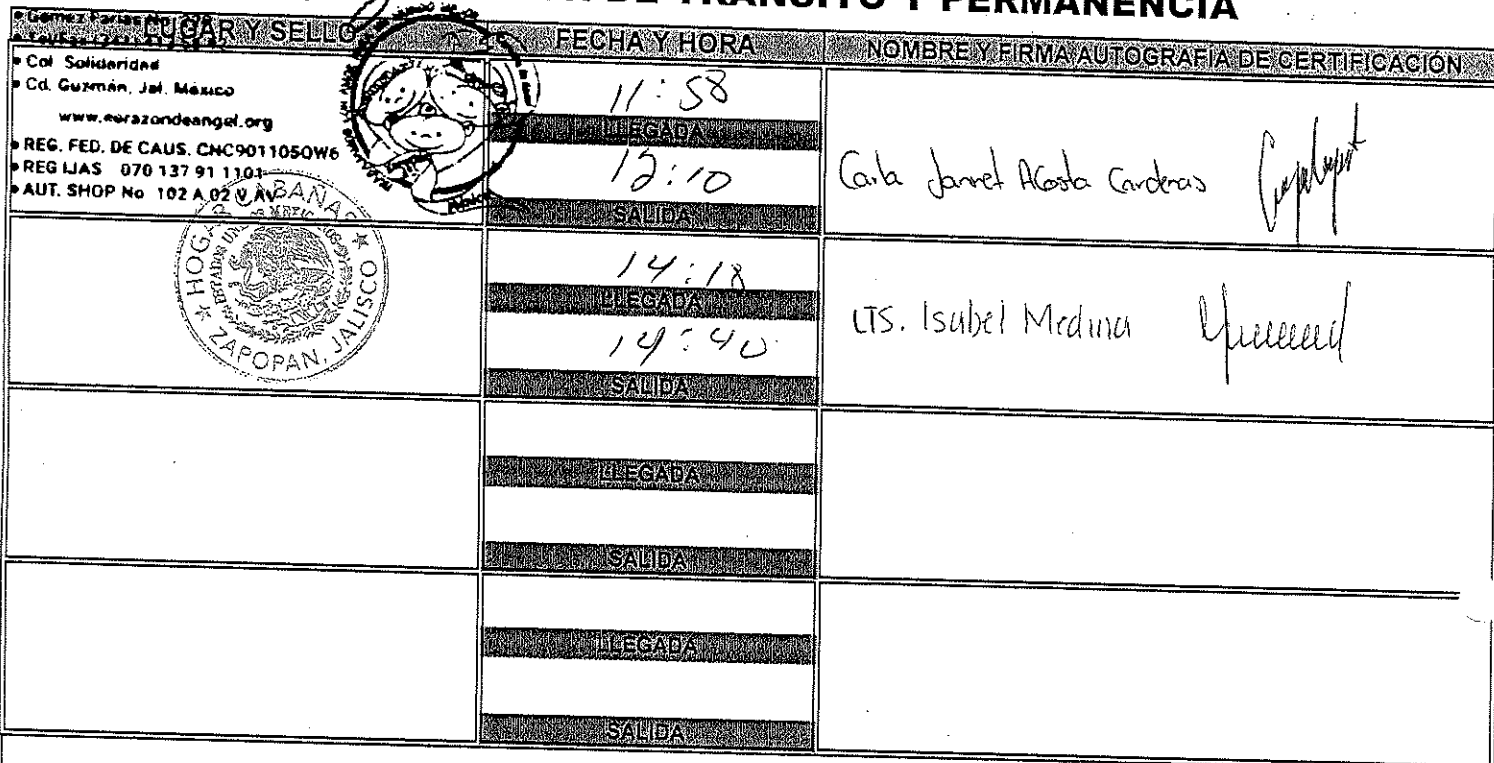 DE TRÁNSITO Y PERMANENCIA
LUGAR Y SELLO
FECHA Y HORA
NOMBRE Y FIRMA AUTOGRAFIA DE CERTIFICACIÓN
Gomez Farias
Col Solidaridad
Cd. Guzmán, Jal. México
REG. FED. DE CAUS. CNC9011050W6
REG IJAS 070 137 91 1101
AUT. SHOP No 102 A 02 V AV
11:58
LLEGADA
SALIDA
Carla Jannet Acosta Cardenas
HOGAR CABAÑAS
ESTADOS UNIDOS MEXICANOS
ZAPOPAN, JALISCO
14:18
LLEGADA
14:40
SALIDA
LTS. Isabel Medina
LLEGADA
SALIDA
LLEGADA
SALIDA